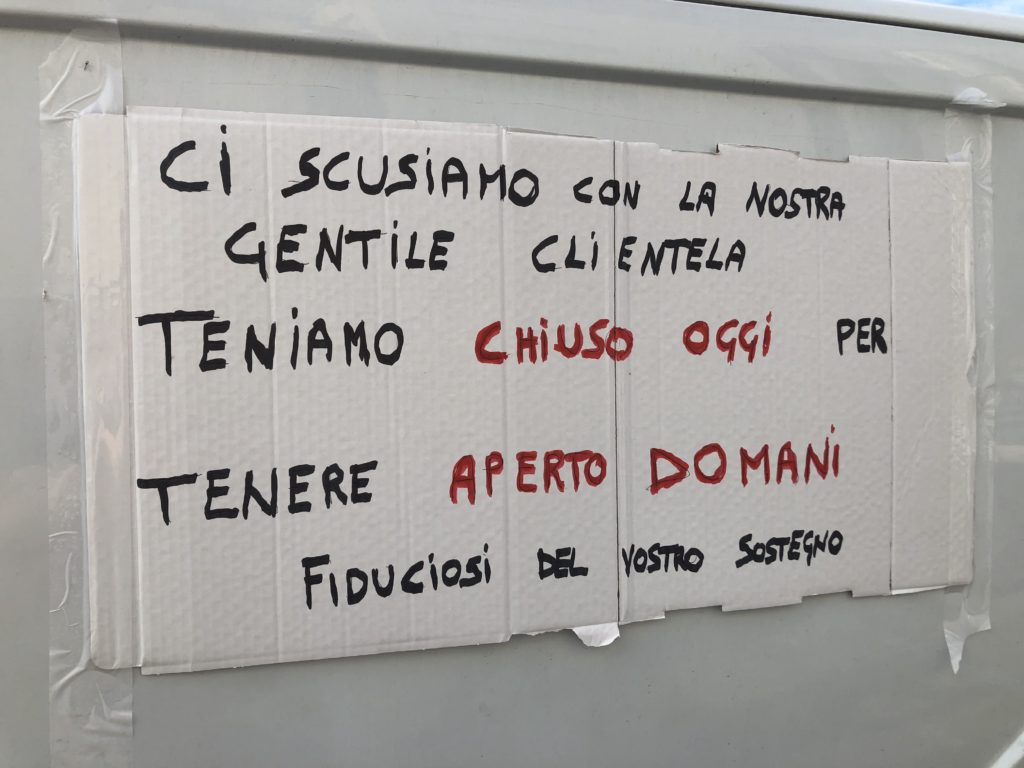 Ci SCUSiAMO CON LA NOSTRA
GENTiLE CLiENTELA
TENiAMO CHiUSO OGGi PER
TENERE APERTO DOMANi
FiDUCiOSi DEL VOSTRO SOSTEGNO